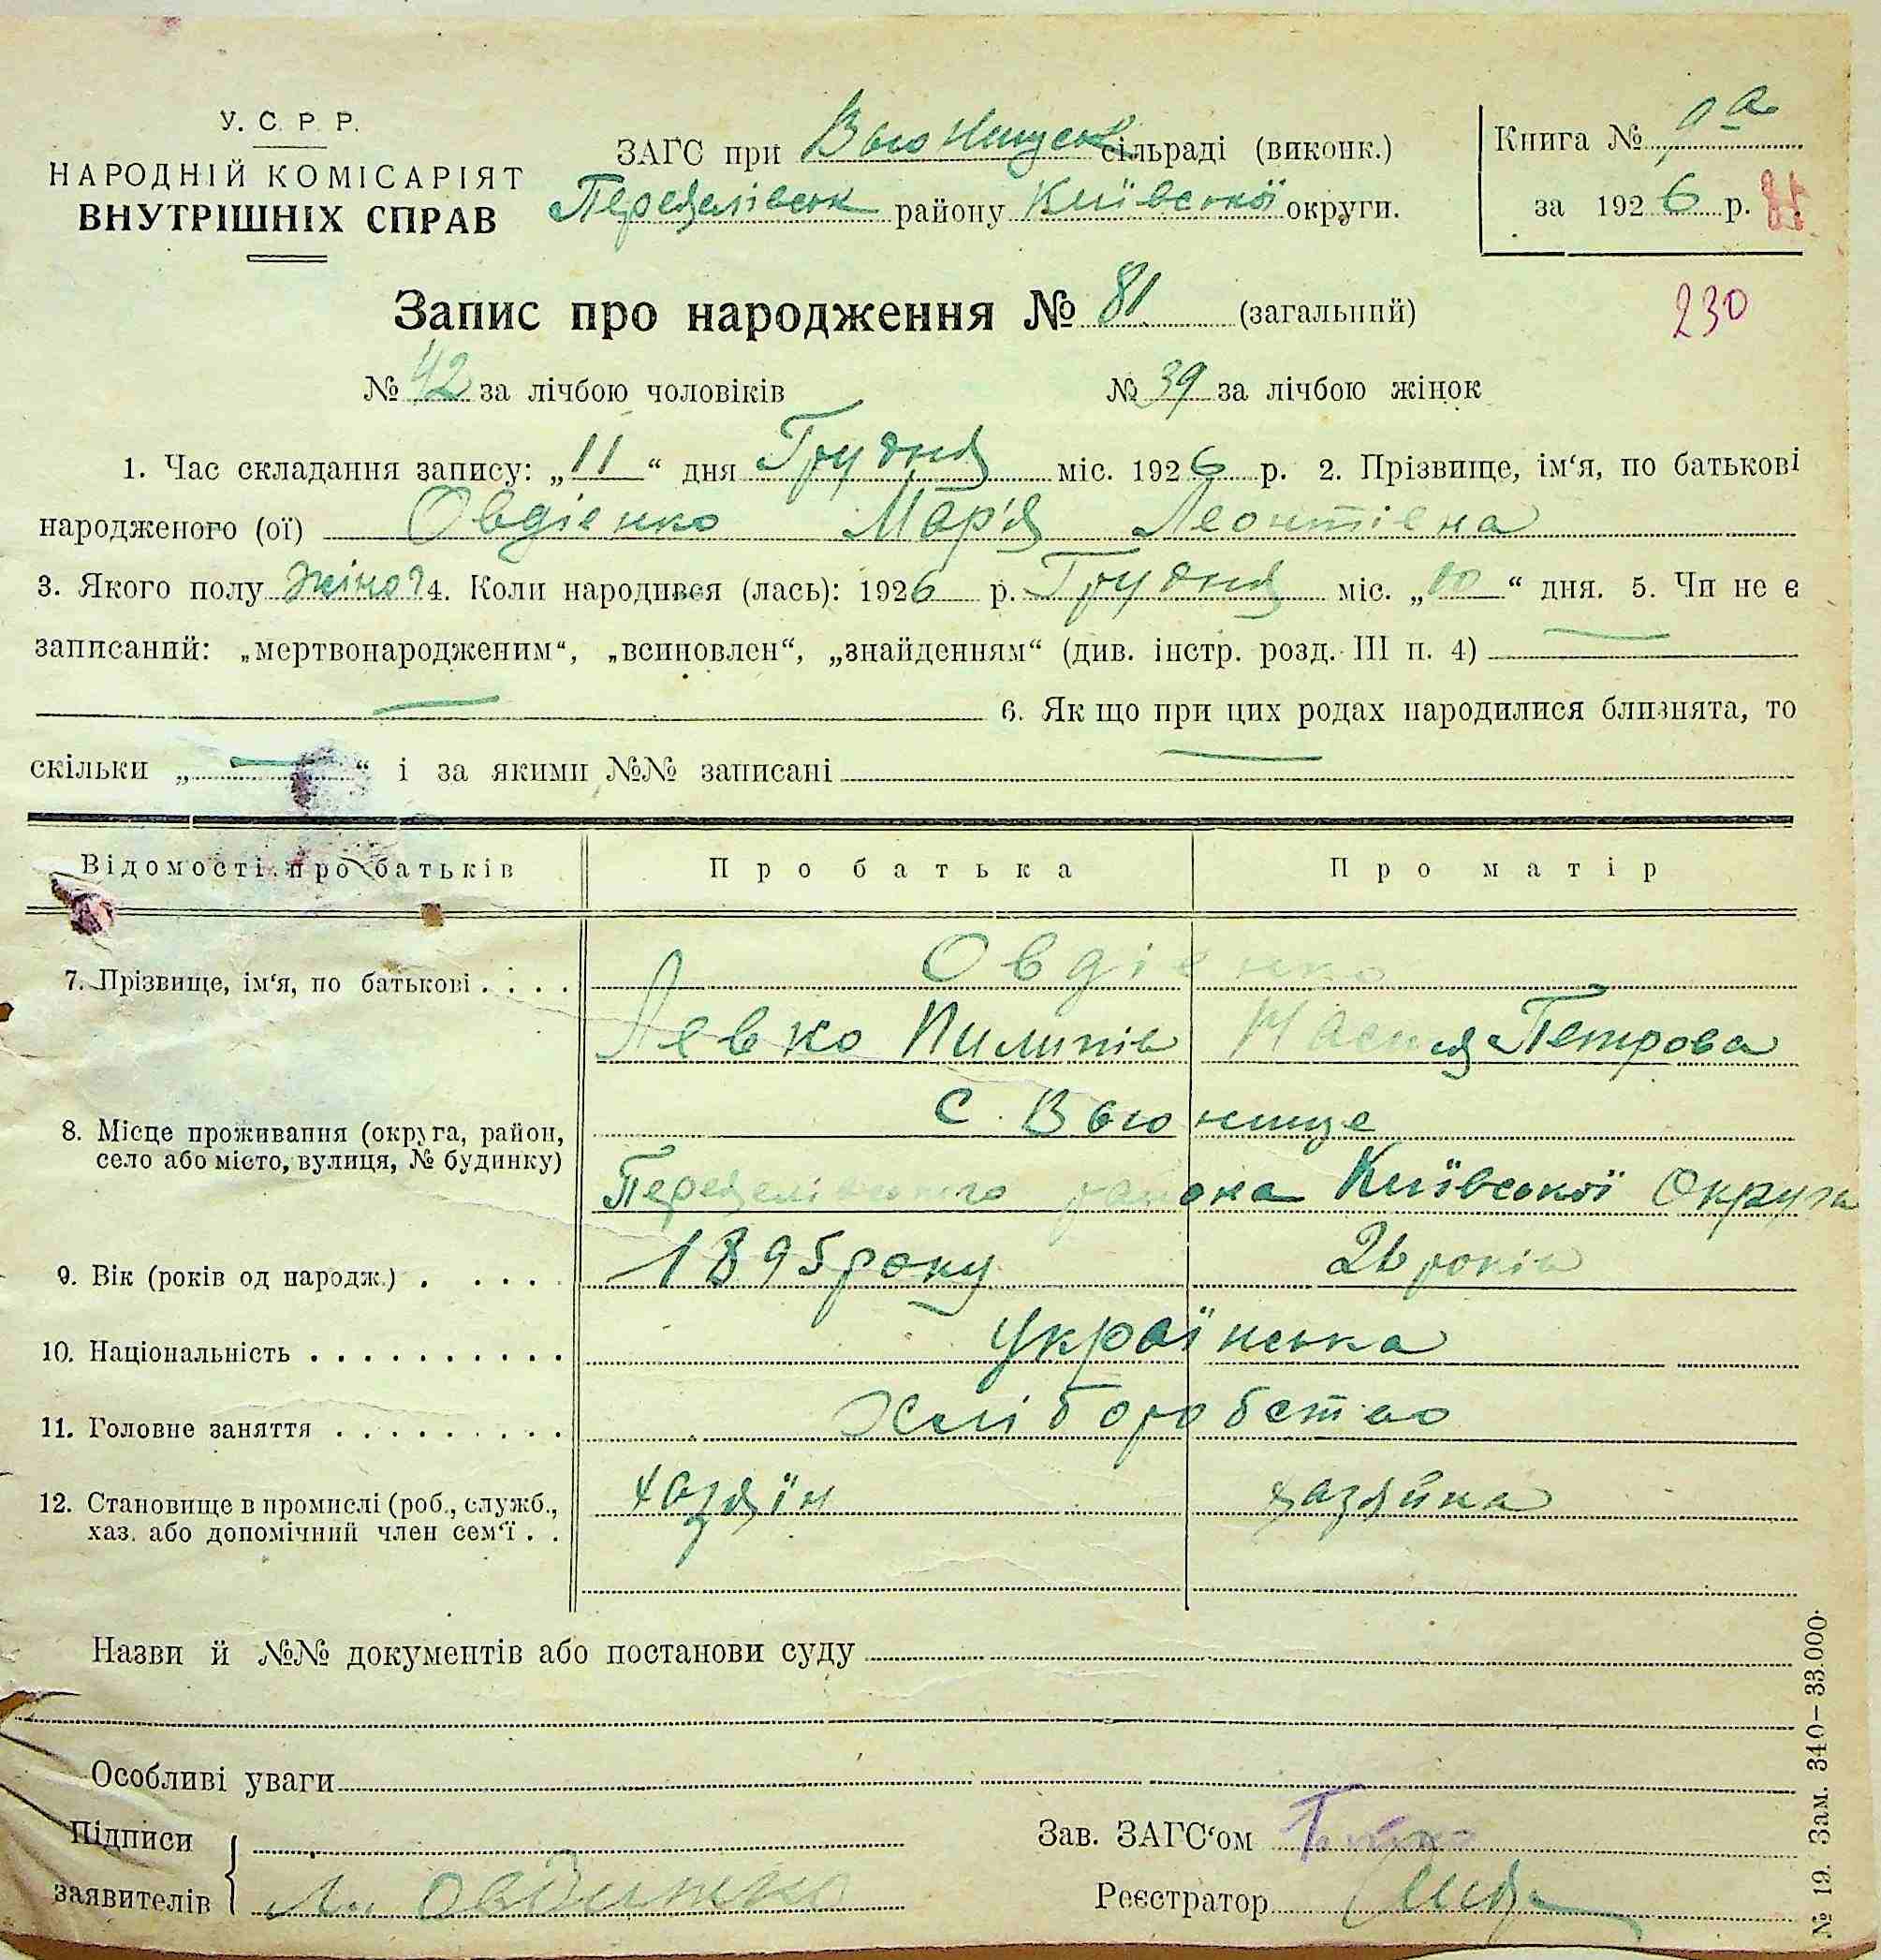 У. С. Р. Р.
НАРОДНІЙ КОМІСАРІЯТ
ВНУТРІШНІХ СПРАВ
ЗАГС при Вьюнищск сільраді (виконк.)
Переяслівськ району Київської округи.
Книга №
за 1926 р.
230
Запис про народження № 81 (загальний)
№ 42 за лічбою чоловіків № 39 за лічбою жінок
1. Час складання запису: „11“ дня Грудня міс. 1926 р. 2. Прізвище, ім‘я, по батькові
народженого (ої) Овдієнко Мар'я Леонтієвна
3. Якого полу жіноч 4. Коли народився (лась): 1926 р. Грудня міс. „10“ дня. 5. Чи не є
записаний: „мертвонародженим“, „всиновлен“, „знайденням“ (див. інстр. розд. III п. 4) —
— 6. Як що при цих родах народилися близнята, то
скільки „—“ і за якими №№ записані —
Відомості про батьків Про батька Про матір
7. Прізвище, ім‘я, по батькові . . . . Овдієнко
Левко Пилипів Настя Петрова
8. Місце проживання (округа, район, село або місто, вулиця, № будинку) с. Вьюнище
Переяслівського района Київської Округи
9. Вік (років од народж.) . . . . . 1895 року 26 років
10. Національність . . . . . . . . . . . Українська
11. Головне заняття . . . . . . . . . Хліборобство
12. Становище в промислі (роб., служб., хазяїн хазяйка
хаз. або допомічний член сем‘ї . .
Назви й №№ документів або постанови суду
Особливі уваги
Підписи
заявителів Овдиенко
Зав. ЗАГС‘ом
Реєстратор
№ 19. Зам. 340–33.000.